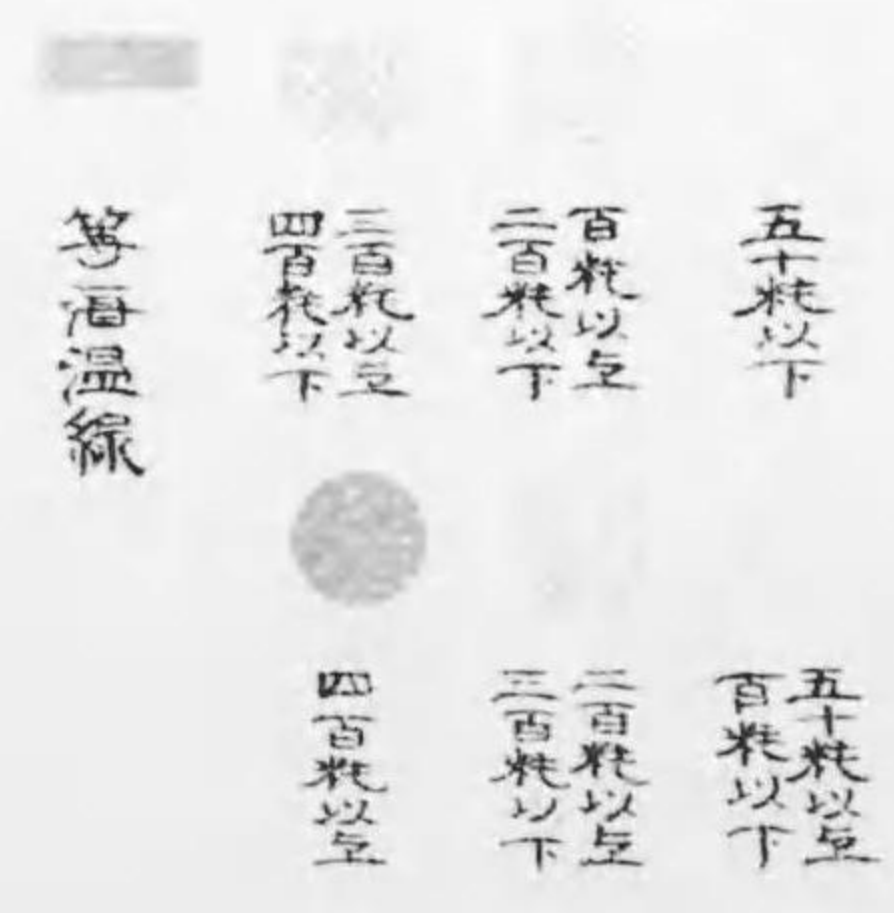 五十粍以下
百粍以上
二百粍以下
三百粍以上
四百粍以下
等海温線
五十粍以上
百粍以下
二百粍以上
三百粍以下
四百粍以上